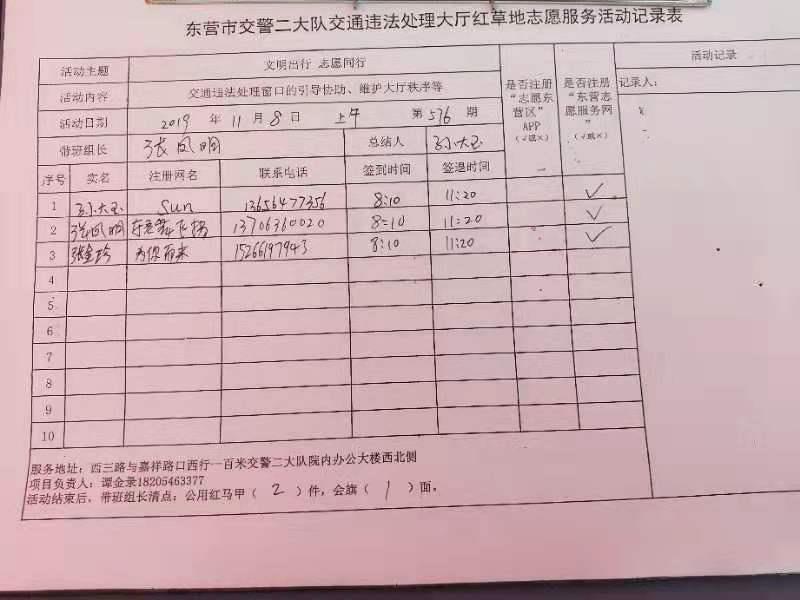 东营市交警二大队交通违法处理大厅红草地志愿服务活动记录表
活动主题 文明出行 志愿同行 是否注册“志愿东营区”APP(√或×) 是否注册“东营志愿服务网”(√或×) 活动记录
活动内容 交通违法处理窗口的引导协助、维护大厅秩序等 记录人：
活动日期 2019 年 11 月 8 日 上午 第 576 期
带班组长 张凤明 总结人 孙大玉
序号 实名 注册网名 联系电话 签到时间 签退时间
1 孙大玉 Sun 13656477356 8:10 11:20 √
2 张凤明 13706360020 8:10 11:20 √
3 张金珍 为你而来 15266197943 8:10 11:20 √
4
5
6
7
8
9
10
服务地址：西三路与嘉祥路口西行一百米交警二大队院内办公大楼西北侧
项目负责人：谭金录18205463377
活动结束后，带班组长清点：公用红马甲（ 2 ）件，会旗（ 1 ）面。